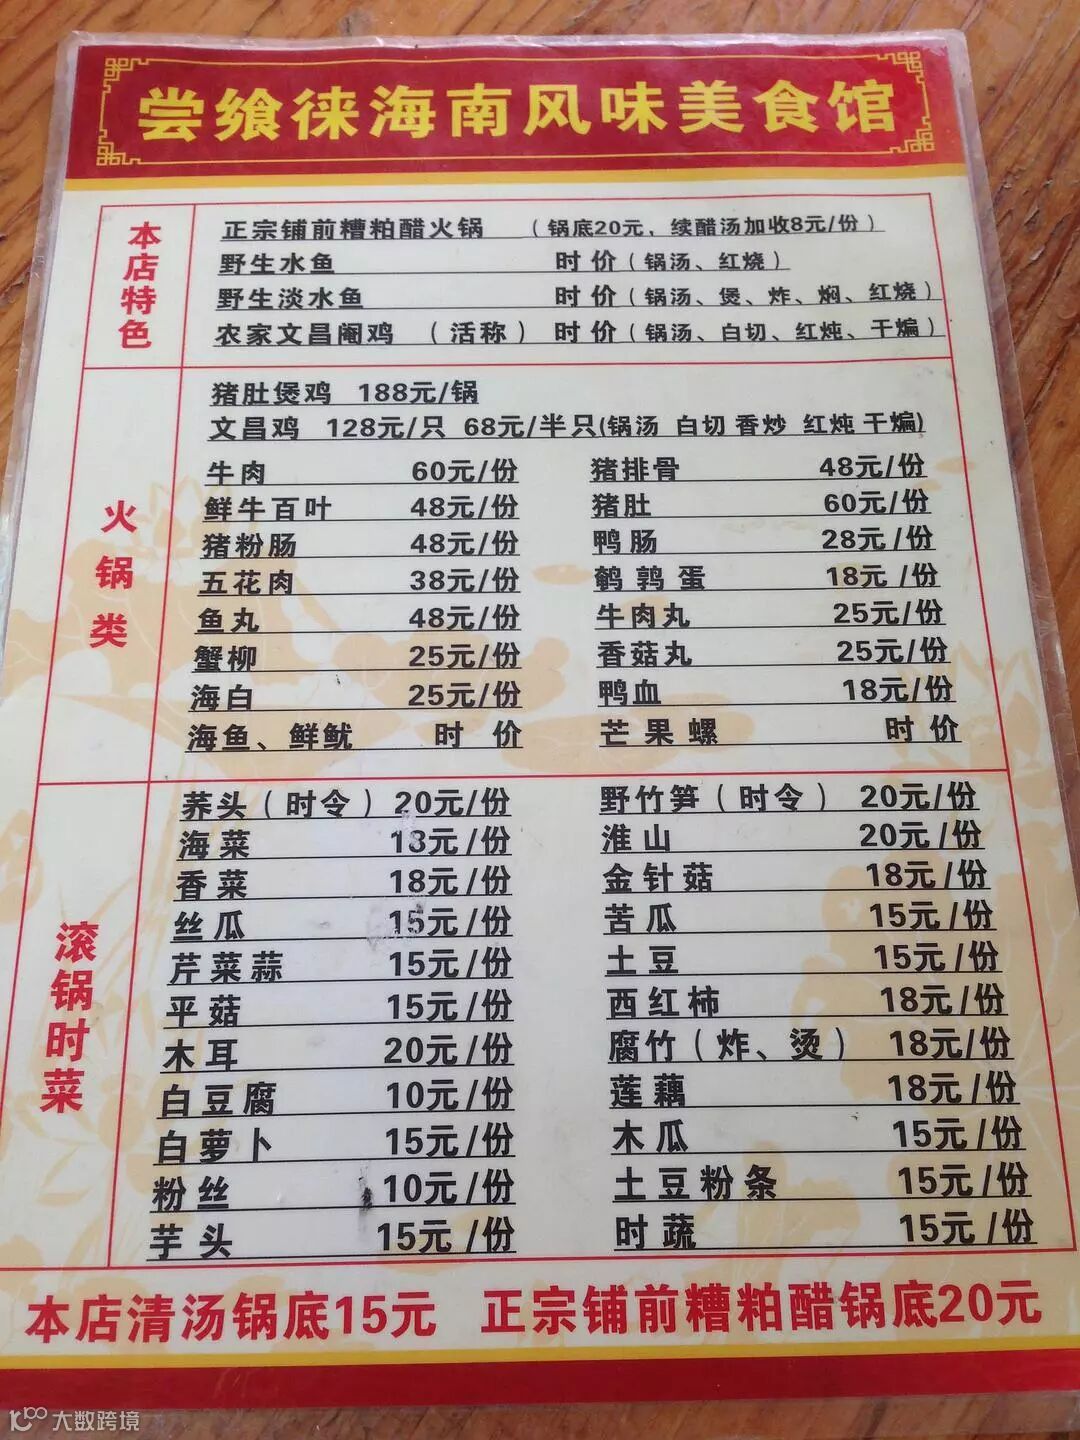 尝飨徕海南风味美食馆
本店特色
正宗铺前糟粕醋火锅 （锅底20元，续醋汤加收8元/份）
野生水鱼 时价（锅汤、红烧）
野生淡水鱼 时价（锅汤、煲、炸、焖、红烧）
农家文昌阉鸡 （活称） 时价（锅汤、白切、红炖、干煸）
火锅类
猪肚煲鸡 188元/锅
文昌鸡 128元/只 68元/半只(锅汤 白切 香炒 红炖 干煸)
牛肉 60元/份 猪排骨 48元/份
鲜牛百叶 48元/份 猪肚 60元/份
猪粉肠 48元/份 鸭肠 28元/份
五花肉 38元/份 鹌鹑蛋 18元/份
鱼丸 48元/份 牛肉丸 25元/份
蟹柳 25元/份 香菇丸 25元/份
海白 25元/份 鸭血 18元/份
海鱼、鲜鱿 时价 芒果螺 时价
滚锅时菜
荞头（时令）20元/份 野竹笋（时令） 20元/份
海菜 18元/份 淮山 20元/份
香菜 18元/份 金针菇 18元/份
丝瓜 15元/份 苦瓜 15元/份
芹菜蒜 15元/份 土豆 15元/份
平菇 15元/份 西红柿 18元/份
木耳 20元/份 腐竹（炸、烫） 18元/份
白豆腐 10元/份 莲藕 18元/份
白萝卜 15元/份 木瓜 15元/份
粉丝 10元/份 土豆粉条 15元/份
芋头 15元/份 时蔬 15元/份
本店清汤锅底15元 正宗铺前糟粕醋锅底20元
大数跨境